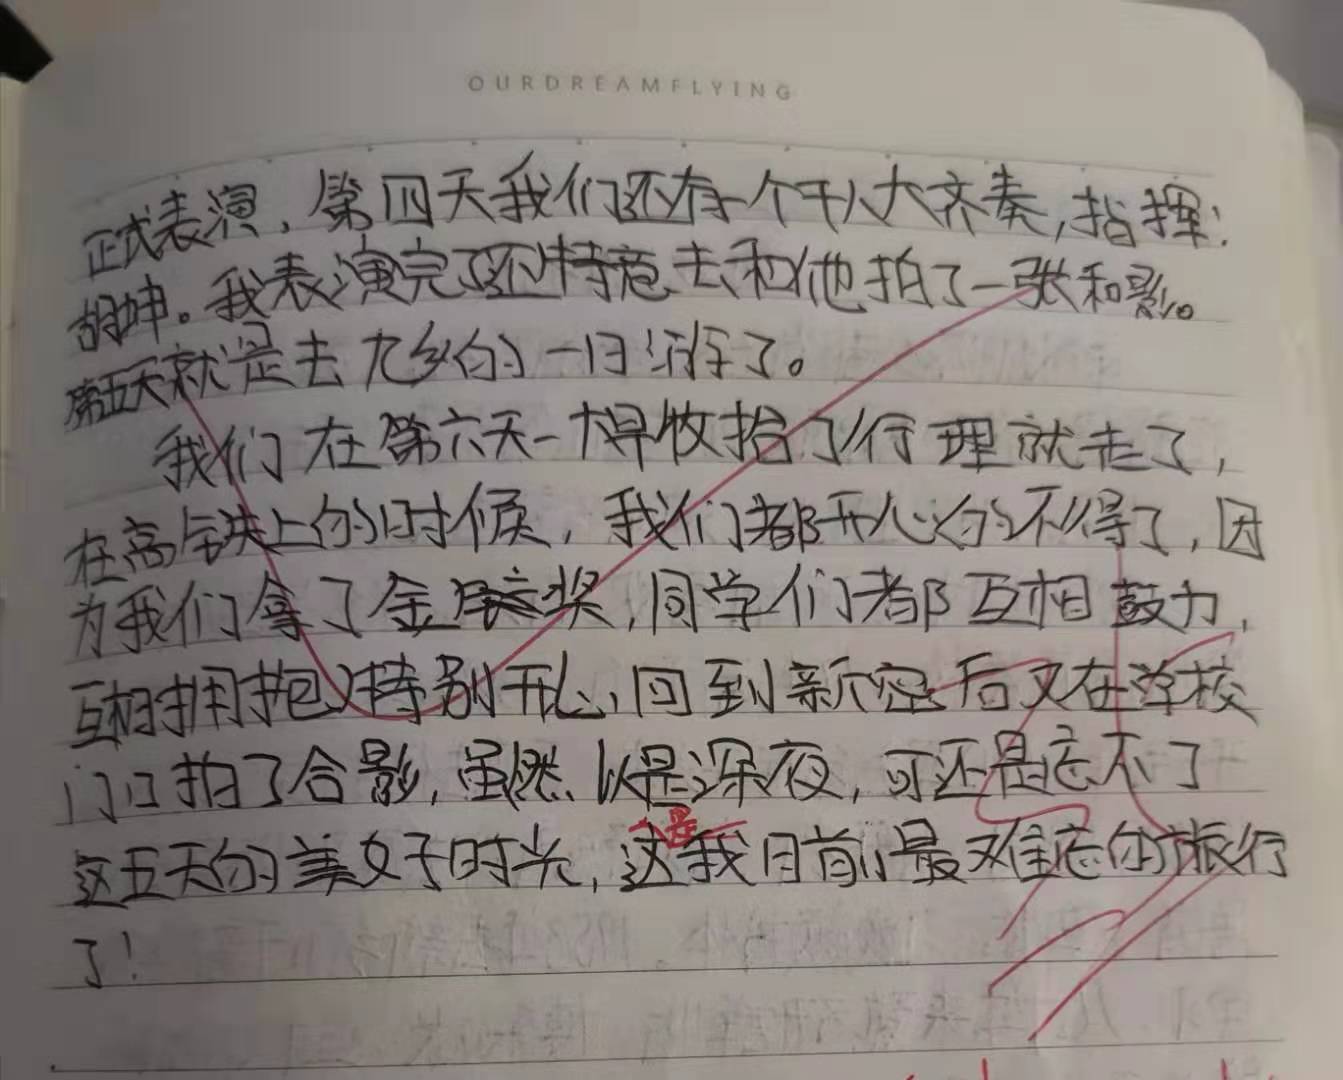 OURDREAMFLYING
正式表演，第四天我们还有一个千人大齐奏，指挥：
胡坤。我表演完了还特意去和他拍了一张和影。
第五天就是去九乡的一日游了。
我们在第六天一大早收拾了行理就走了，
在高铁上的时候，我们都开心的不得了，因
为我们拿了金奖，同学们都互相鼓力，
互相拥抱特别开心，回到新密后又在学校
门口拍了合影，虽然以是深夜，可还是忘不了
这五天的美好时光，这是我目前最难忘的旅行
了！